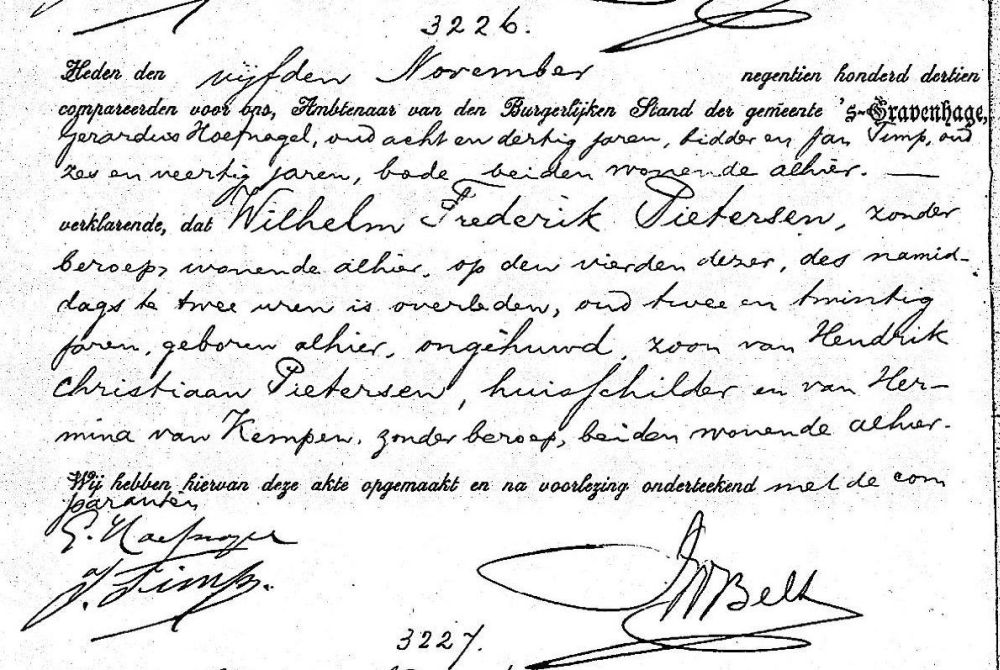 3226.
Heden den vijfden November negentien honderd dertien
compareerden voor ons, Ambtenaar van den Burgerlijken Stand der gemeente 's-Gravenhage,
Gerardus Hoefnagel, oud acht en dertig jaren, bidder en Jan Timp, oud
zes en veertig jaren, bode, beiden wonende alhier. —
verklarende, dat Wilhelm Frederik Pietersen, zonder
beroep, wonende alhier, op den vierden dezer, des namid-
dags te twee uren is overleden, oud twee en twintig
jaren, geboren alhier, ongehuwd, zoon van Hendrik
Christiaan Pietersen, huisschilder en van Her-
mina van Kempen, zonder beroep, beiden wonende alhier.
Wij hebben hiervan deze akte opgemaakt en na voorlezing onderteekend met de com
paranten
G. Hoefnagel
J. Timp.
Belt
3227.